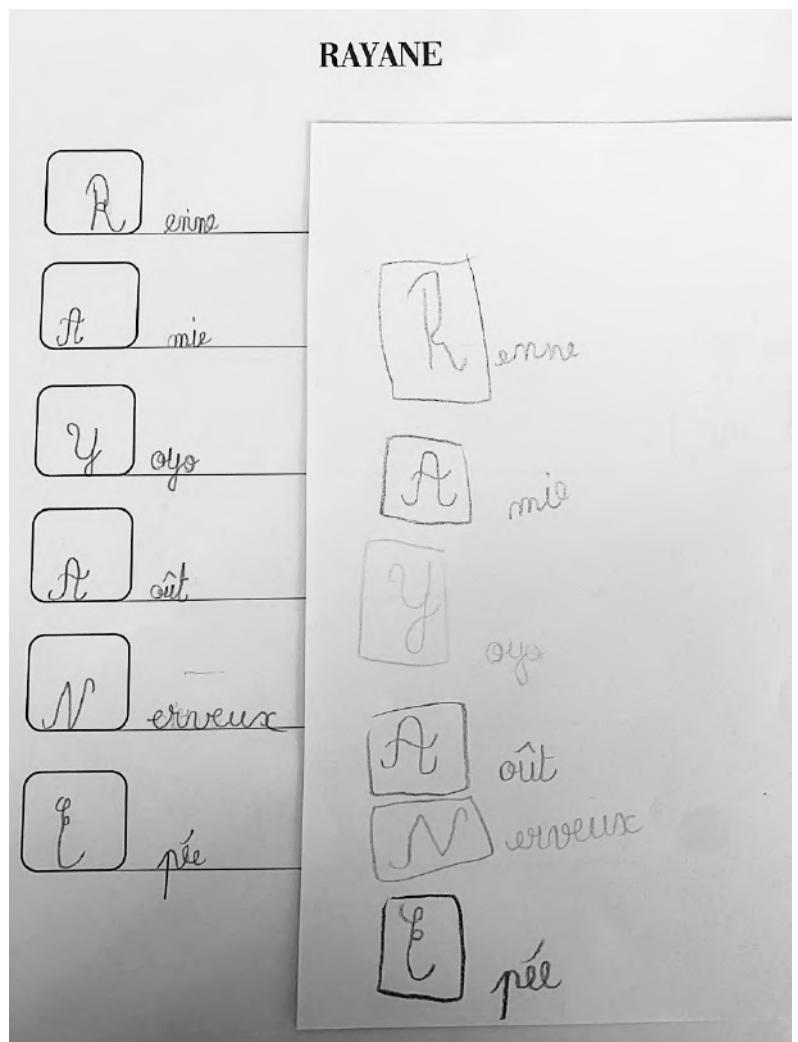 RAYANE
R enne
A mie
Y oyo
A oût
N erveux
E pée
R enne
A mie
Y oyo
A oût
N erveux
E pée